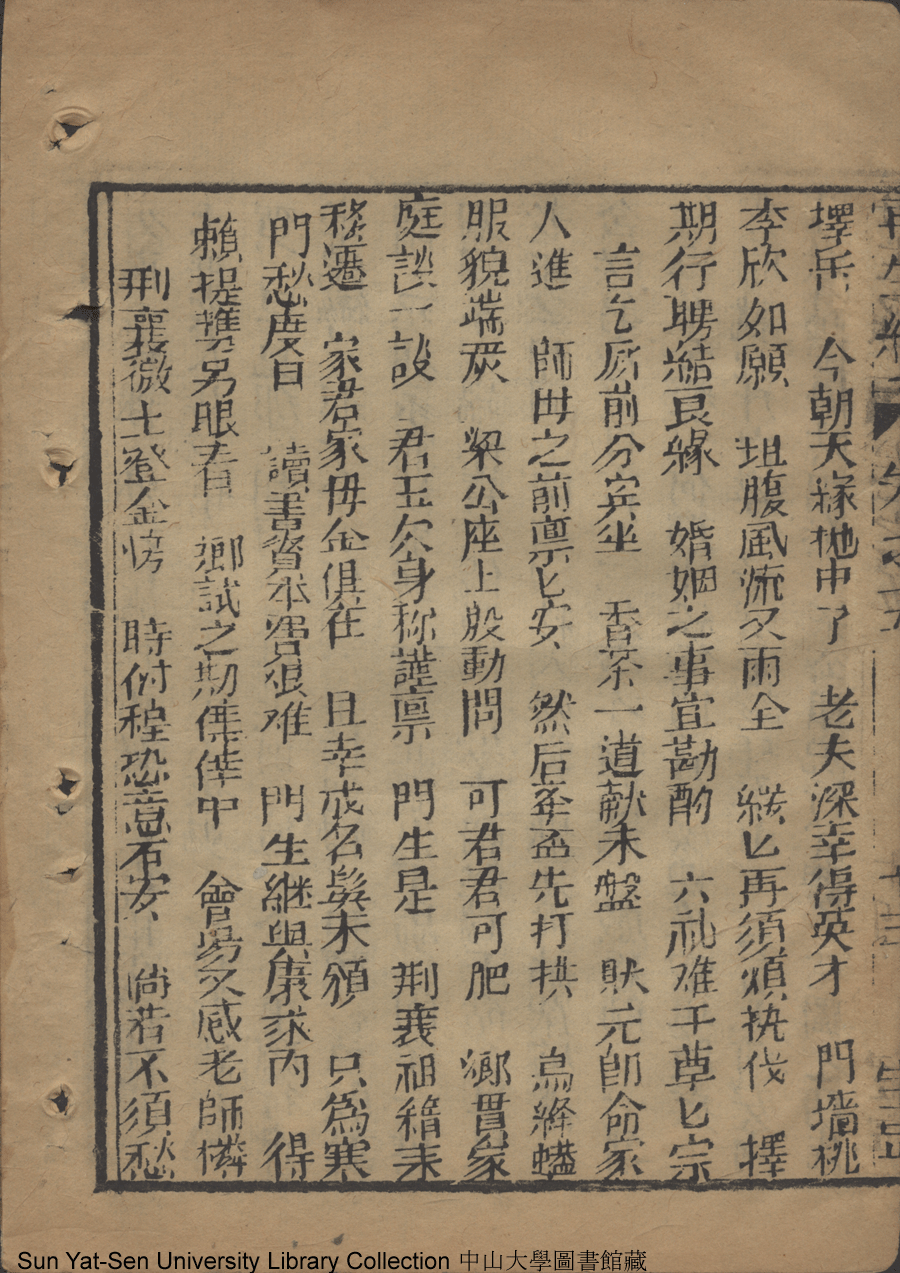 墿岳 今朝天緣抛中了 老夫深幸得英才 門墻桃
李欣如願 坦腹風流又雨全 緂匕再須煩执伐 擇
期行聘結良緣 婚姻之事宜勘酌 六礼难干尊匕宗
言乞所前分宾坐 香茶一道献未盤 狀元即命家
人進 師毋之前禀匕安 然后奉盃先打拱 烏絳蟒
服貌端炭 梁公座上殷動問 可君君可肥 鄉貫家
庭談一說 君玉欠身称謹禀 門生是 荆襄祖籍未
移遷 家君家毋金俱在 且幸成名髮未頒 只為寒
門愁度日 讀書資本窘很难 門生継與康家丙 得
賴提携另眼看 鄉試之期僥倖中 會場又感老師憐
刑襄微士登金榜 時付程恐意不安 倘若不須愁
Sun Yat-Sen University Library Collection 中山大學圖書館藏